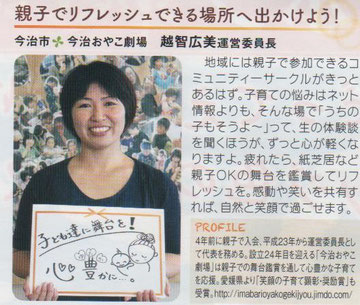 親子でリフレッシュできる場所へ出かけよう!
今治市 今治おやこ劇場 越智広美運営委員長
地域には親子で参加できるコ
ミュニティーサークルがきっと
あるはず。子育ての悩みはネット
情報よりも、そんな場で「うちの
子もそうよ〜」って、生の体験談
を聞くほうが、ずっと心が軽くな
りますよ。疲れたら、紙芝居など
親子OKの舞台を鑑賞してリフ
レッシュを。感動や笑いを共有す
れば、自然と笑顔で過ごせます。
子ども達に舞台を!
心豊かに…
PROFILE
4年前に親子で入会、平成23年から運営委員長とし
て代表を務める。設立24年目を迎える「今治おやこ
劇場」は親子での舞台鑑賞を通して心豊かな子育て
を応援。愛媛県より「笑顔の子育て顕彰・奨励賞」も
受賞。http://imabarioyakogekijyou.jimdo.com/